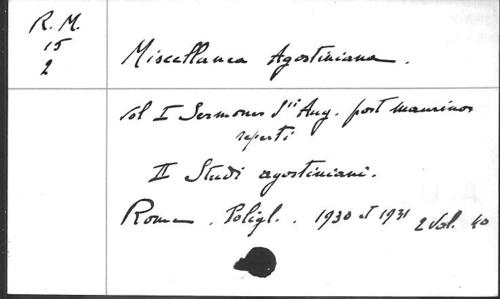 R. M.
15
2
Miscellanea Agostiniana.
Vol I Sermones S^ti Aug. post maurinos
reperti
II Studi agostiniani.
Roma. Poligl.. 1930 et 1931 2 Vol. 4o